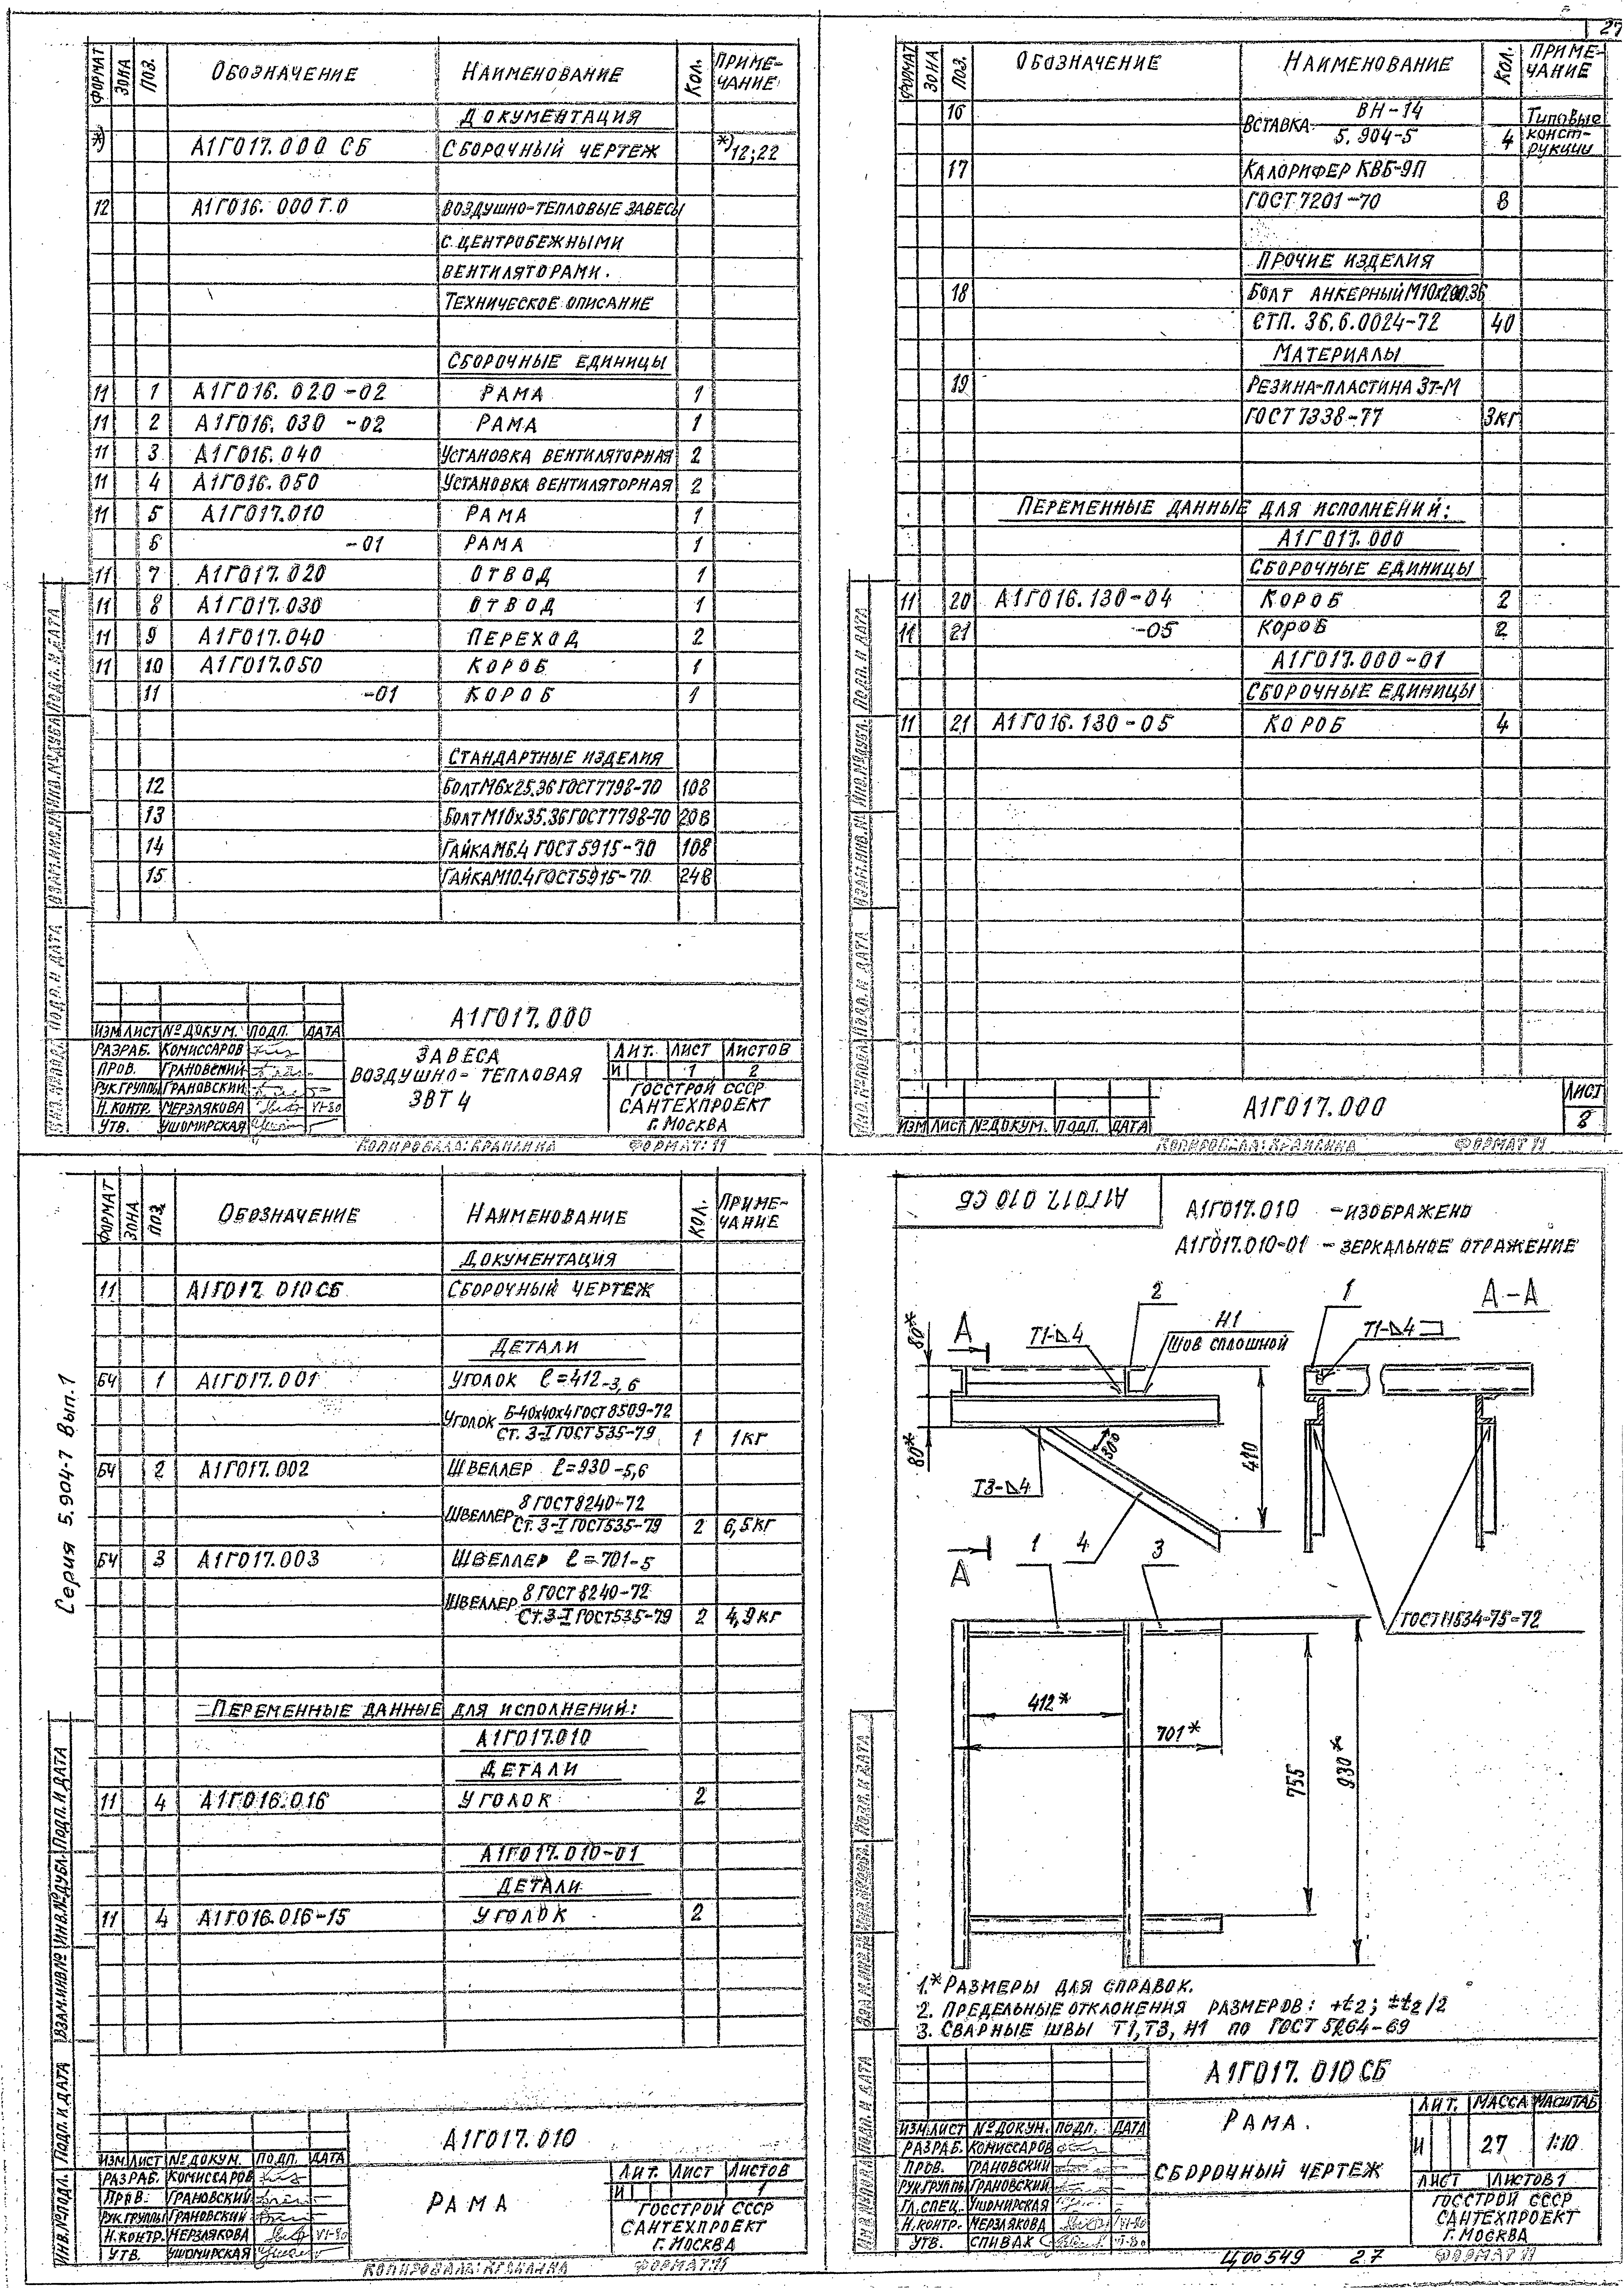 27
ФОРМАТ ЗОНА ПОЗ. ОБОЗНАЧЕНИЕ НАИМЕНОВАНИЕ КОЛ. ПРИМЕ-ЧАНИЕ
ДОКУМЕНТАЦИЯ
*) А1Г017.000 СБ СБОРОЧНЫЙ ЧЕРТЕЖ *)12;22
12 А1Г016.000Т.О ВОЗДУШНО-ТЕПЛОВЫЕ ЗАВЕСЫ
С ЦЕНТРОБЕЖНЫМИ
ВЕНТИЛЯТОРАМИ.
ТЕХНИЧЕСКОЕ ОПИСАНИЕ
СБОРОЧНЫЕ ЕДИНИЦЫ
11 1 А1Г016.020-02 РАМА 1
11 2 А1Г016.030-02 РАМА 1
11 3 А1Г016.040 УСТАНОВКА ВЕНТИЛЯТОРНАЯ 2
11 4 А1Г016.050 УСТАНОВКА ВЕНТИЛЯТОРНАЯ 2
11 5 А1Г017.010 РАМА 1
6 -01 РАМА 1
11 7 А1Г017.020 ОТВОД 1
11 8 А1Г017.030 ОТВОД 1
11 9 А1Г017.040 ПЕРЕХОД 2
11 10 А1Г017.050 КОРОБ 1
11 -01 КОРОБ 1
СТАНДАРТНЫЕ ИЗДЕЛИЯ
12 БОЛТ М6х25.36 ГОСТ7798-70 108
13 БОЛТ М10х35.36 ГОСТ7798-70 208
14 ГАЙКА М6.4 ГОСТ 5915-70 108
15 ГАЙКА М10.4 ГОСТ 5915-70 248
А1Г017.000
ИЗМ ЛИСТ №ДОКУМ. ПОДП. ДАТА
РАЗРАБ. КОМИССАРОВ
ПРОВ. ГРАНОВСКИЙ
РУК.ГРУППЫ ГРАНОВСКИЙ
Н.КОНТР. МЕРЗЛЯКОВА VI-80
УТВ. УШОМИРСКАЯ
ЗАВЕСА
ВОЗДУШНО-ТЕПЛОВАЯ
ЗВТ 4
ЛИТ. ЛИСТ ЛИСТОВ
И 1 2
ГОССТРОЙ СССР
САНТЕХПРОЕКТ
Г. МОСКВА
КОПИРОВАЛА: КРАПИНА ФОРМАТ: 11
ФОРМАТ ЗОНА ПОЗ. ОБОЗНАЧЕНИЕ НАИМЕНОВАНИЕ КОЛ. ПРИМЕ-ЧАНИЕ
16 ВСТАВКА ВН-14 5.904-5 4 Типовые конст-рукции
17 КАЛОРИФЕР КВБ-9П
ГОСТ 7201-70 8
ПРОЧИЕ ИЗДЕЛИЯ
18 БОЛТ АНКЕРНЫЙ М10х200.36
СТП. 36.6.0024-72 40
МАТЕРИАЛЫ
19 РЕЗИНА-ПЛАСТИНА 3Т-М
ГОСТ 7338-77 3кг
ПЕРЕМЕННЫЕ ДАННЫЕ ДЛЯ ИСПОЛНЕНИЙ:
А1Г017.000
СБОРОЧНЫЕ ЕДИНИЦЫ
11 20 А1Г016.130-04 КОРОБ 2
11 21 -05 КОРОБ 2
А1Г017.000-01
СБОРОЧНЫЕ ЕДИНИЦЫ
11 21 А1Г016.130-05 КОРОБ 4
ИЗМ ЛИСТ №ДОКУМ. ПОДП. ДАТА
А1Г017.000
ЛИСТ
8
ФОРМАТ 11
Серия 5.904-7 Вып.1
ФОРМАТ ЗОНА ПОЗ. ОБОЗНАЧЕНИЕ НАИМЕНОВАНИЕ КОЛ. ПРИМЕ-ЧАНИЕ
ДОКУМЕНТАЦИЯ
11 А1Г017 010 СБ СБОРОЧНЫЙ ЧЕРТЕЖ
ДЕТАЛИ
БЧ 1 А1Г017.001 УГОЛОК ℓ=412-3,6
УГОЛОК Б-40х40х4 ГОСТ 8509-72
СТ. 3-I ГОСТ 535-79 1 1кг
БЧ 2 А1Г017.002 ШВЕЛЛЕР ℓ=930-5,6
ШВЕЛЛЕР 8 ГОСТ 8240-72
СТ. 3-I ГОСТ535-79 2 6,5кг
БЧ 3 А1Г017.003 ШВЕЛЛЕР ℓ=701-5
ШВЕЛЛЕР 8 ГОСТ 8240-72
СТ.3-I ГОСТ535-79 2 4,9кг
ПЕРЕМЕННЫЕ ДАННЫЕ ДЛЯ ИСПОЛНЕНИЙ:
А1Г017.010
ДЕТАЛИ
11 4 А1Г016.016 УГОЛОК 2
А1Г017.010-01
ДЕТАЛИ
11 4 А1Г016.016-15 УГОЛОК 2
ИНВ.№ПОДЛ. ПОДП. И ДАТА ВЗАМ.ИНВ.№ ИНВ.№ДУБЛ. ПОДП. И ДАТА
А1Г017.010
ИЗМ ЛИСТ №ДОКУМ. ПОДП. ДАТА
РАЗРАБ. КОМИССАРОВ
ПРОВ. ГРАНОВСКИЙ
РУК.ГРУППЫ ГРАНОВСКИЙ
Н.КОНТР. МЕРЗЛЯКОВА VI-80
УТВ. УШОМИРСКАЯ
РАМА
ЛИТ. ЛИСТ ЛИСТОВ
И 1
ГОССТРОЙ СССР
САНТЕХПРОЕКТ
Г. МОСКВА
ФОРМАТ 11
А1Г017 010 СБ
А1Г017.010 -ИЗОБРАЖЕНО
А1Г017.010-01 - ЗЕРКАЛЬНОЕ ОТРАЖЕНИЕ
А-А
80* А Т1-⊿4 2 Н1 ШОВ СПЛОШНОЙ 1 Т1-⊿4
80* 30° 410
Т3-⊿4
А 1 4 3
ГОСТ 11534-75-72
412*
701*
755
930*
1.* РАЗМЕРЫ ДЛЯ СПРАВОК.
2. ПРЕДЕЛЬНЫЕ ОТКЛОНЕНИЯ РАЗМЕРОВ: +t2; ±t2/2
3. СВАРНЫЕ ШВЫ Т1,Т3, Н1 ПО ГОСТ 5264-69
А1Г017. 010 СБ
ИЗМ ЛИСТ №ДОКУМ. ПОДП. ДАТА
РАЗРАБ. КОМИССАРОВ
ПРОВ. ГРАНОВСКИЙ
РУК.ГРУППЫ ГРАНОВСКИЙ
ГЛ.СПЕЦ. УШОМИРСКАЯ
Н.КОНТР. МЕРЗЛЯКОВА VI-80
УТВ. СПИВАК
РАМА.
СБОРОЧНЫЙ ЧЕРТЕЖ
ЛИТ. МАССА МАСШТАБ
И 27 1:10
ЛИСТ ЛИСТОВ 1
ГОССТРОЙ СССР
САНТЕХПРОЕКТ
Г. МОСКВА
Ц00549 27 ФОРМАТ 11